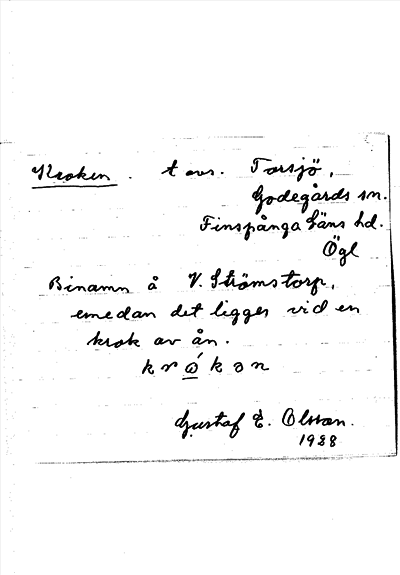 Kroken. t avs. Torsjö,
Godegårds sn.
Finspånga läns hd.
Ögl
Binamn å V. Strömstorp,
emedan det ligger vid en
krok av ån.
k r ώ k ə n
Gustaf E. Olsson.
1928